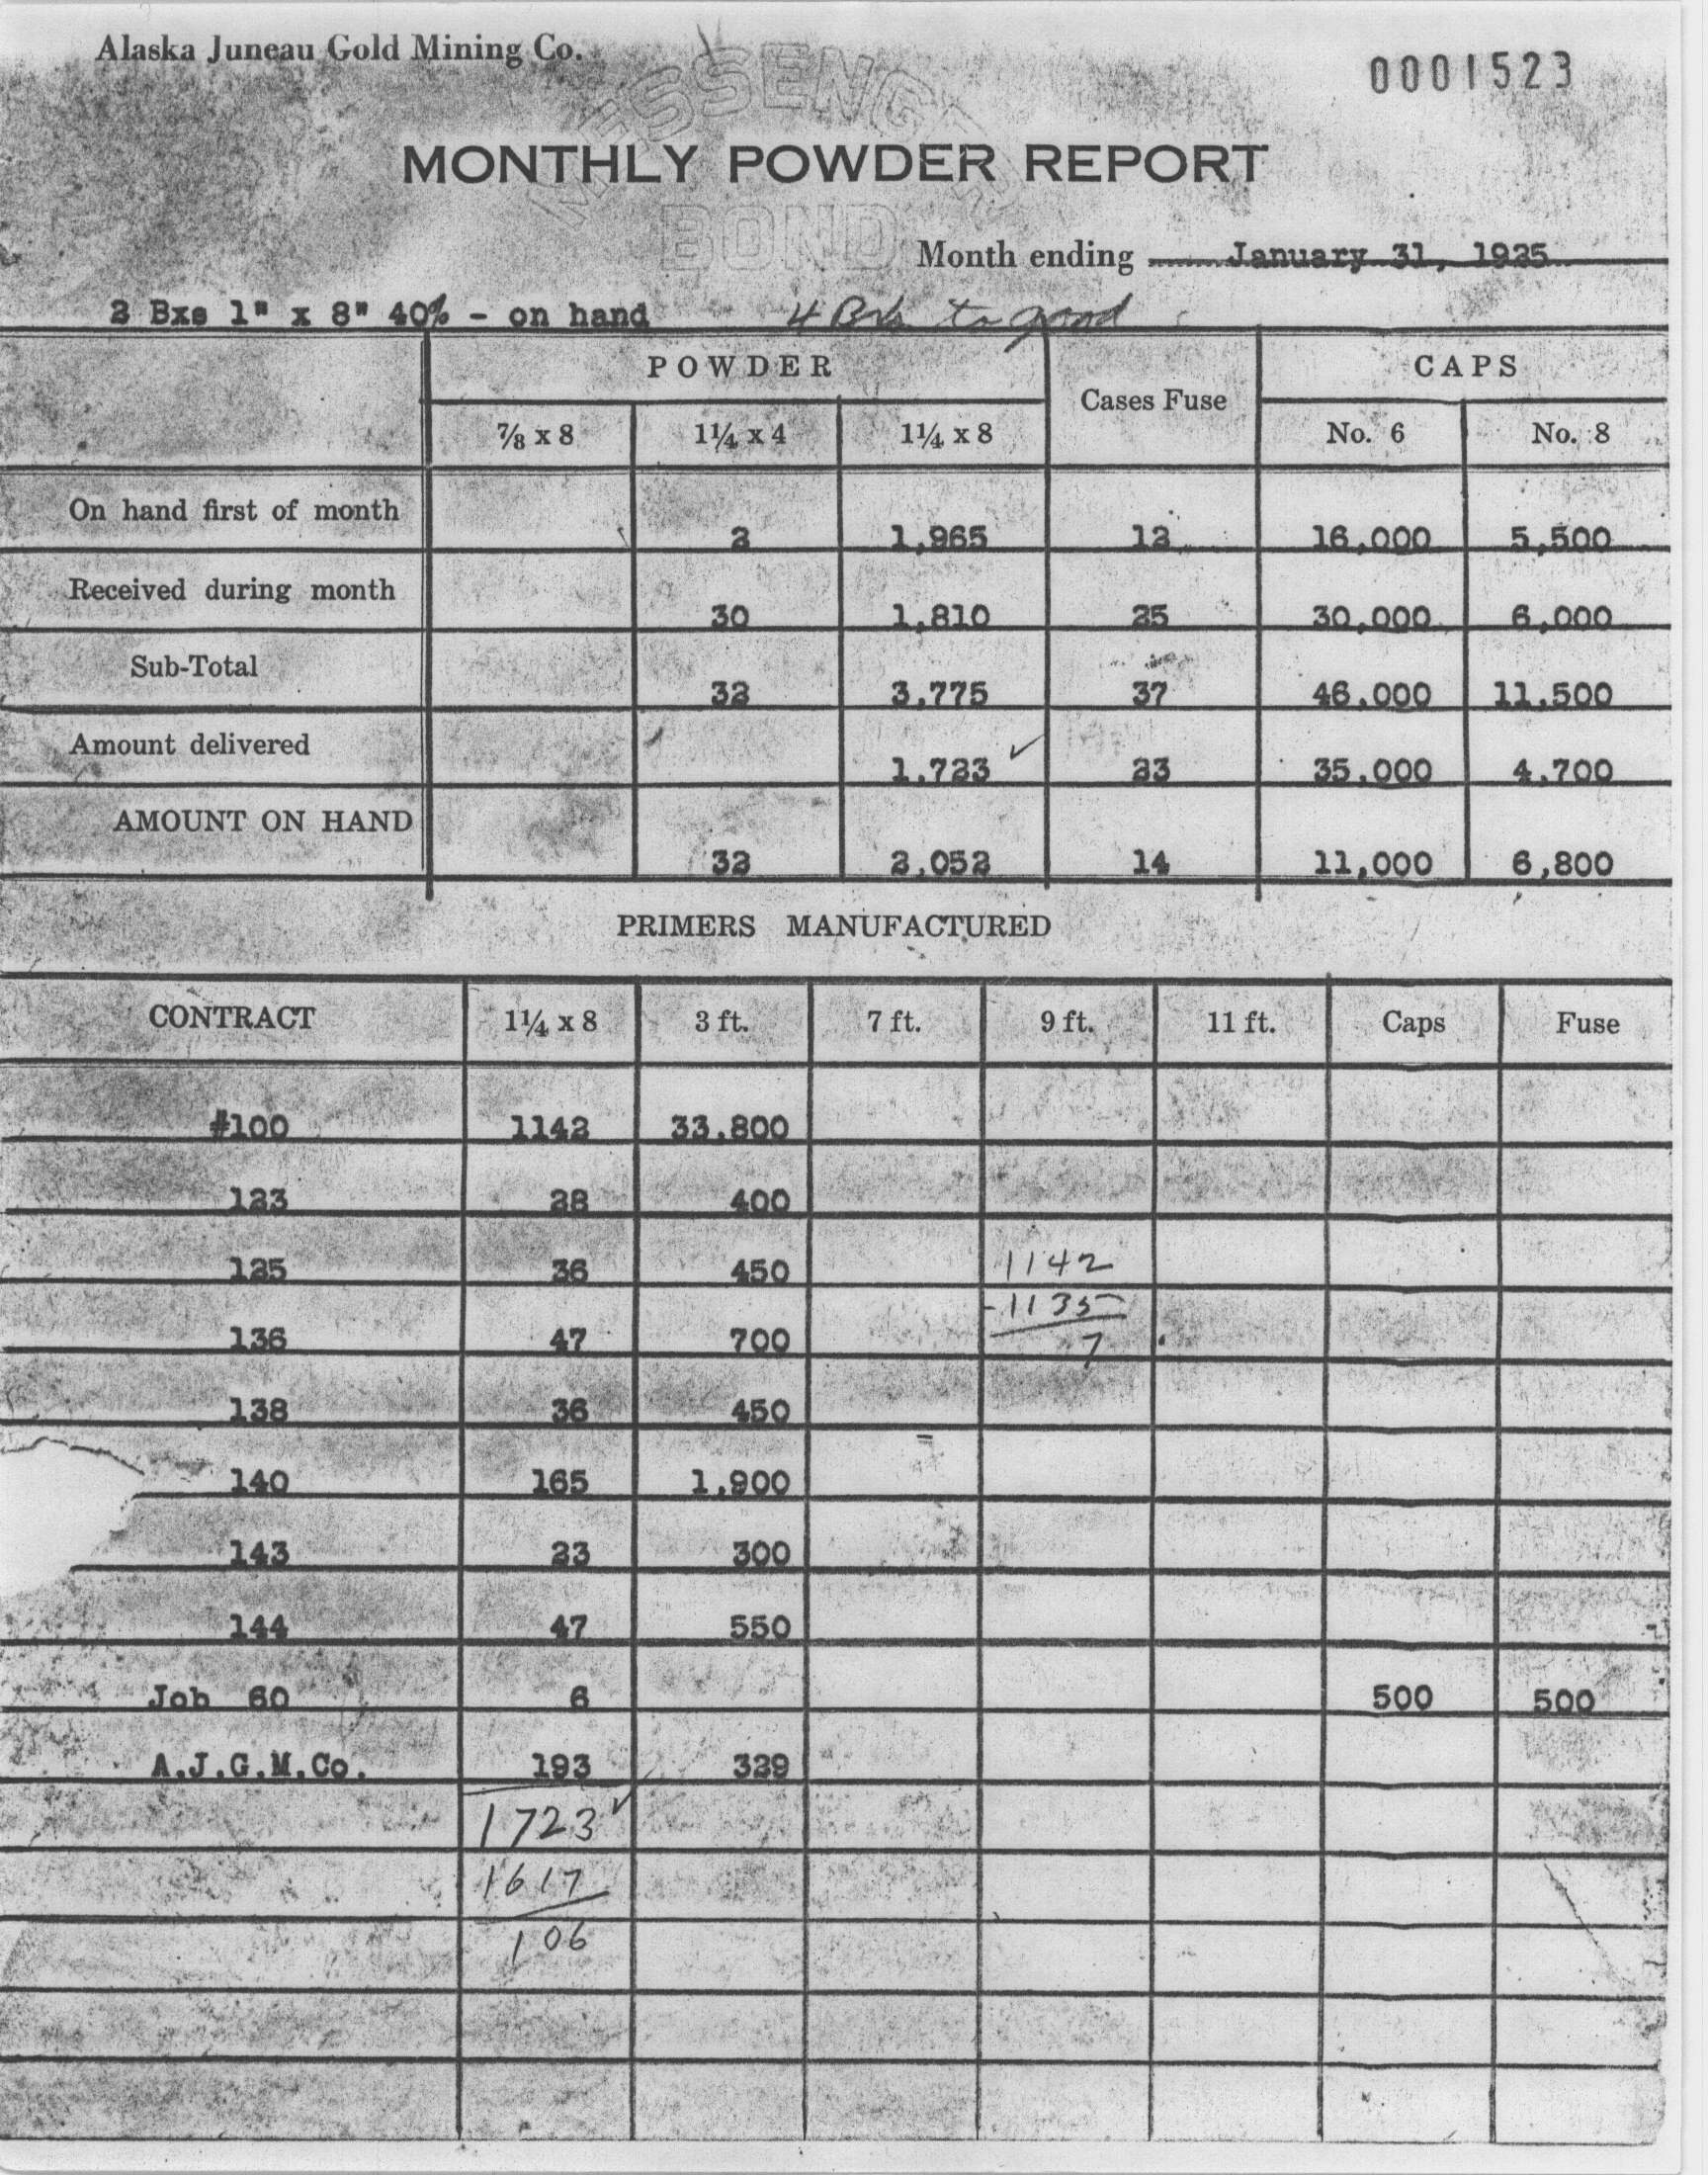 Alaska Juneau Gold Mining Co.
0001523
MESSENGER
BOND
MONTHLY POWDER REPORT
Month ending January 31, 1925
2 Bxs 1" x 8" 40% - on hand 4 Bxs to good
POWDER Cases Fuse CAPS
⅞ x 8 1¼ x 4 1¼ x 8 No. 6 No. 8
On hand first of month 2 1,965 12 16,000 5,500
Received during month 30 1,810 25 30,000 6,000
Sub-Total 32 3,775 37 46,000 11,500
Amount delivered 1,723 ✓ 23 35,000 4,700
AMOUNT ON HAND 32 2,052 14 11,000 6,800
PRIMERS MANUFACTURED
CONTRACT 1¼ x 8 3 ft. 7 ft. 9 ft. 11 ft. Caps Fuse
#100 1142 33,800
123 28 400
125 36 450 1142
136 47 700 -1135
7
138 36 450
140 165 1,900
143 23 300
144 47 550
Job 60 6 500 500
A.J.G.M.Co. 193 329
1723 ✓
1617
106